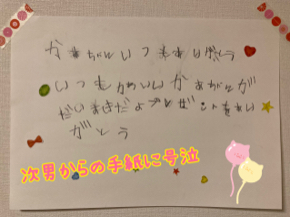 かあちゃんいつもありがとう
いつもかわいいかあちゃんが
だいすきだよプレゼントをあり
がとう
次男からの手紙に号泣